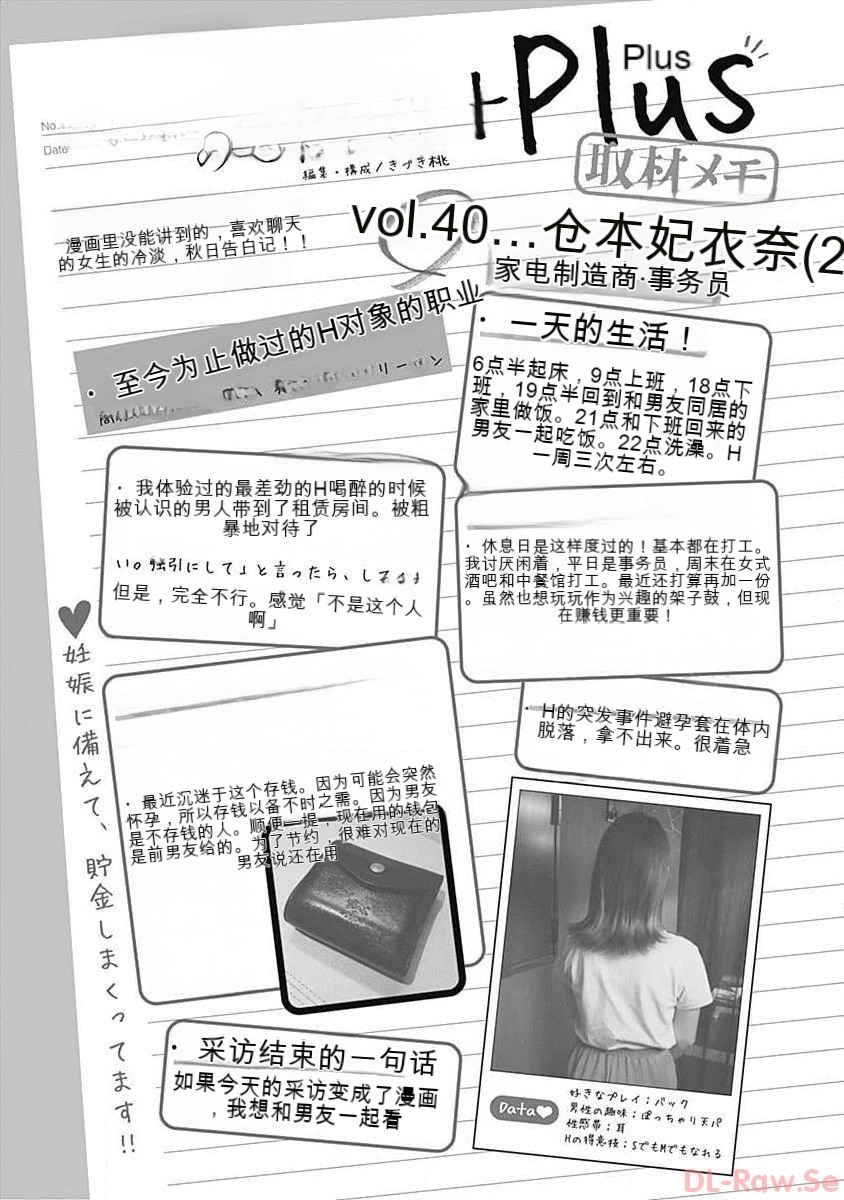 Plus
Plus
No.
Date
編集・構成/きづき桃
取材メモ
漫画里没能讲到的，喜欢聊天
的女生的冷淡，秋日告白记！！
vol.40…仓本妃衣奈(2
家电制造商·事务员
・至今为止做过的H对象的职业
リーマン
・一天的生活！
6点半起床，9点上班，18点下
班，19点半回到和男友同居的
家里做饭。21点和下班回来的
男友一起吃饭。22点洗澡。H
一周三次左右。
・我体验过的最差劲的H喝醉的时候
被认识的男人带到了租赁房间。被粗
暴地对待了
強引にして」と言ったら、
但是，完全不行。感觉「不是这个人
啊」
・休息日是这样度过的！基本都在打工。
我讨厌闲着，平日是事务员，周末在女式
酒吧和中餐馆打工。最近还打算再加一份
。虽然也想玩玩作为兴趣的架子鼓，但现
在赚钱更重要！
・H的突发事件避孕套在体内
脱落，拿不出来。很着急
♥妊娠に備えて、貯金しまくってます!!
・最近沉迷于这个存钱。因为可能会突然
怀孕，所以存钱以备不时之需。因为男友
是不存钱的人。顺便一提，现在用的钱包
是前男友给的。为了节约，很难对现在的
男友说还在用
・采访结束的一句话
如果今天的采访变成了漫画
，我想和男友一起看
Data♥
好きなプレイ；バック
男性の趣味；ぽっちゃり天パ
性感帯；耳
Hの得意技；SでもMでもなれる
DL-Raw.Se